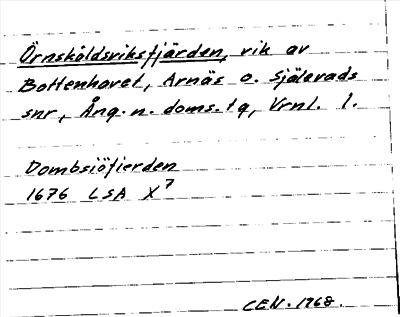 Örnsköldsviksfjärden, vik av
Bottenhavet, Arnäs o. Själevads
snr, Ång. n. doms. tg, Vrnl. l.
Dombsiöfierden
1676 LSA X7
CEN. 1968.